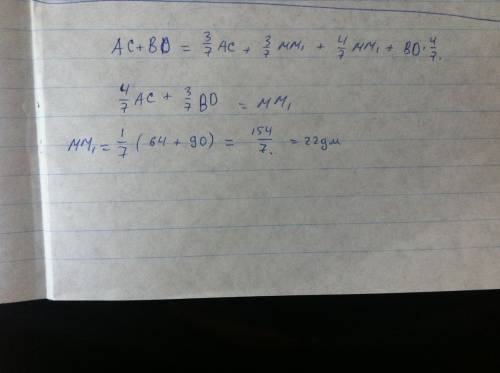 AC+BD = 3/7 AC + 3/7 MM₁ + 4/7 MM₁ + BD · 4/7.
4/7 AC + 3/7 BD = MM₁
MM₁ = 1/7 (64 + 90) = 154/7. = 22дм